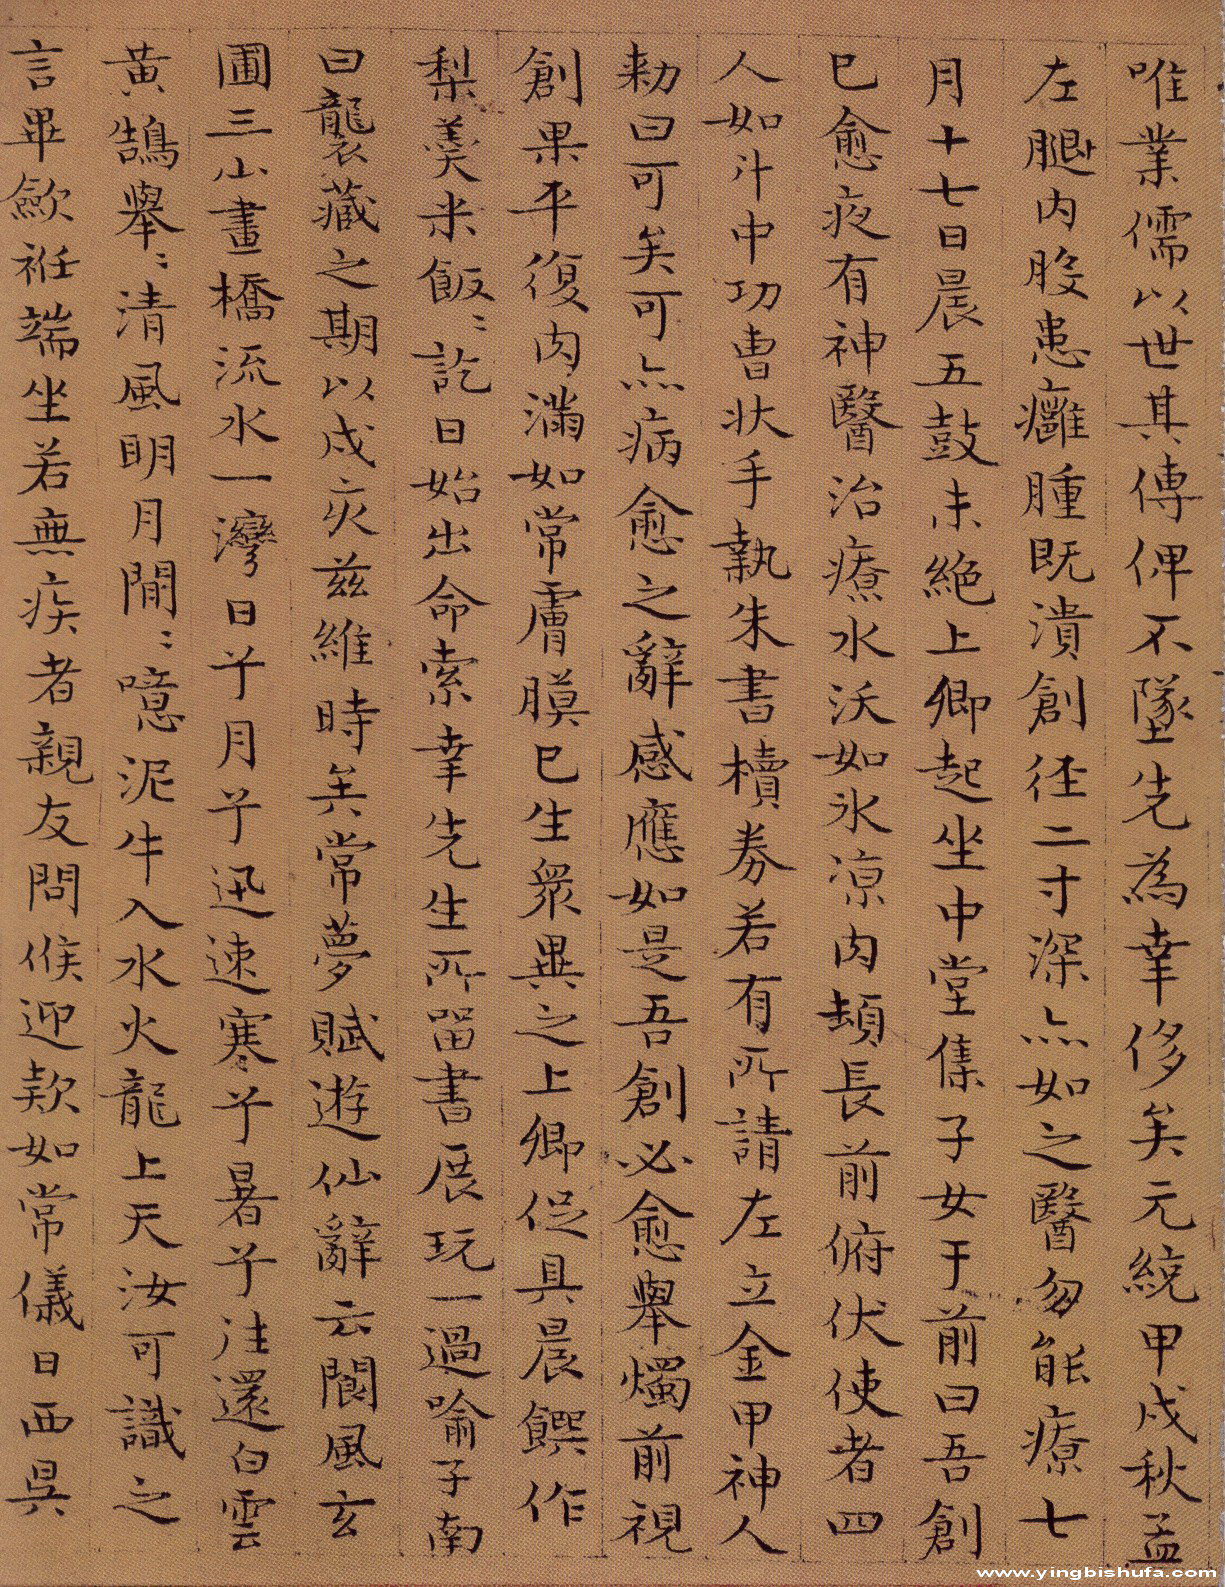 唯業儒以世其傳俾不墜先為幸侈矣元統甲戌秋孟
左腿内股患癰腫既潰創徑二寸深亦如之醫匆能療七
月十七日晨五鼓未絶上卿起坐中堂集子女于前曰吾創
已愈夜有神醫治療水沃如氷凉肉頓長前俯伏使者四
人如斗中功曹狀手執朱書櫝券若有所請左立金甲神人
勑曰可矣可亦病愈之辭感應如是吾創必愈舉燭前視
創果平復肉滿如常膚膜已生衆異之上卿促具晨饌作
梨羹米飯〻訖日始出命索幸先生所留書展玩一過喻子南
曰襲藏之期以戌灾兹維時矣常夢賦遊仙辭云閬風玄
圃三山畫橋流水一灣日兮月兮迅速寒兮暑兮往還白雲
黄鵠舉〻清風明月間〻噫泥牛入水火龍上天汝可識之
言畢歛袵端坐若無疾者親友問候迎款如常儀日西昃
www.yingbishufa.com